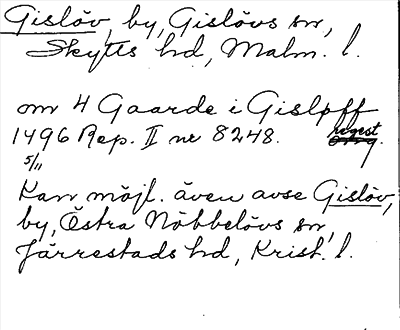 Gislöv, by, Gislövs sn,
Skytts hd, Malm. l.
om 4 Gaarde i Gisløff
1496 Rep. II nr 8248. regest
5/11
Kan möjl. även avse Gislöv,
by, Östra Nöbbelövs sn,
Järrestads hd, Krist. l.